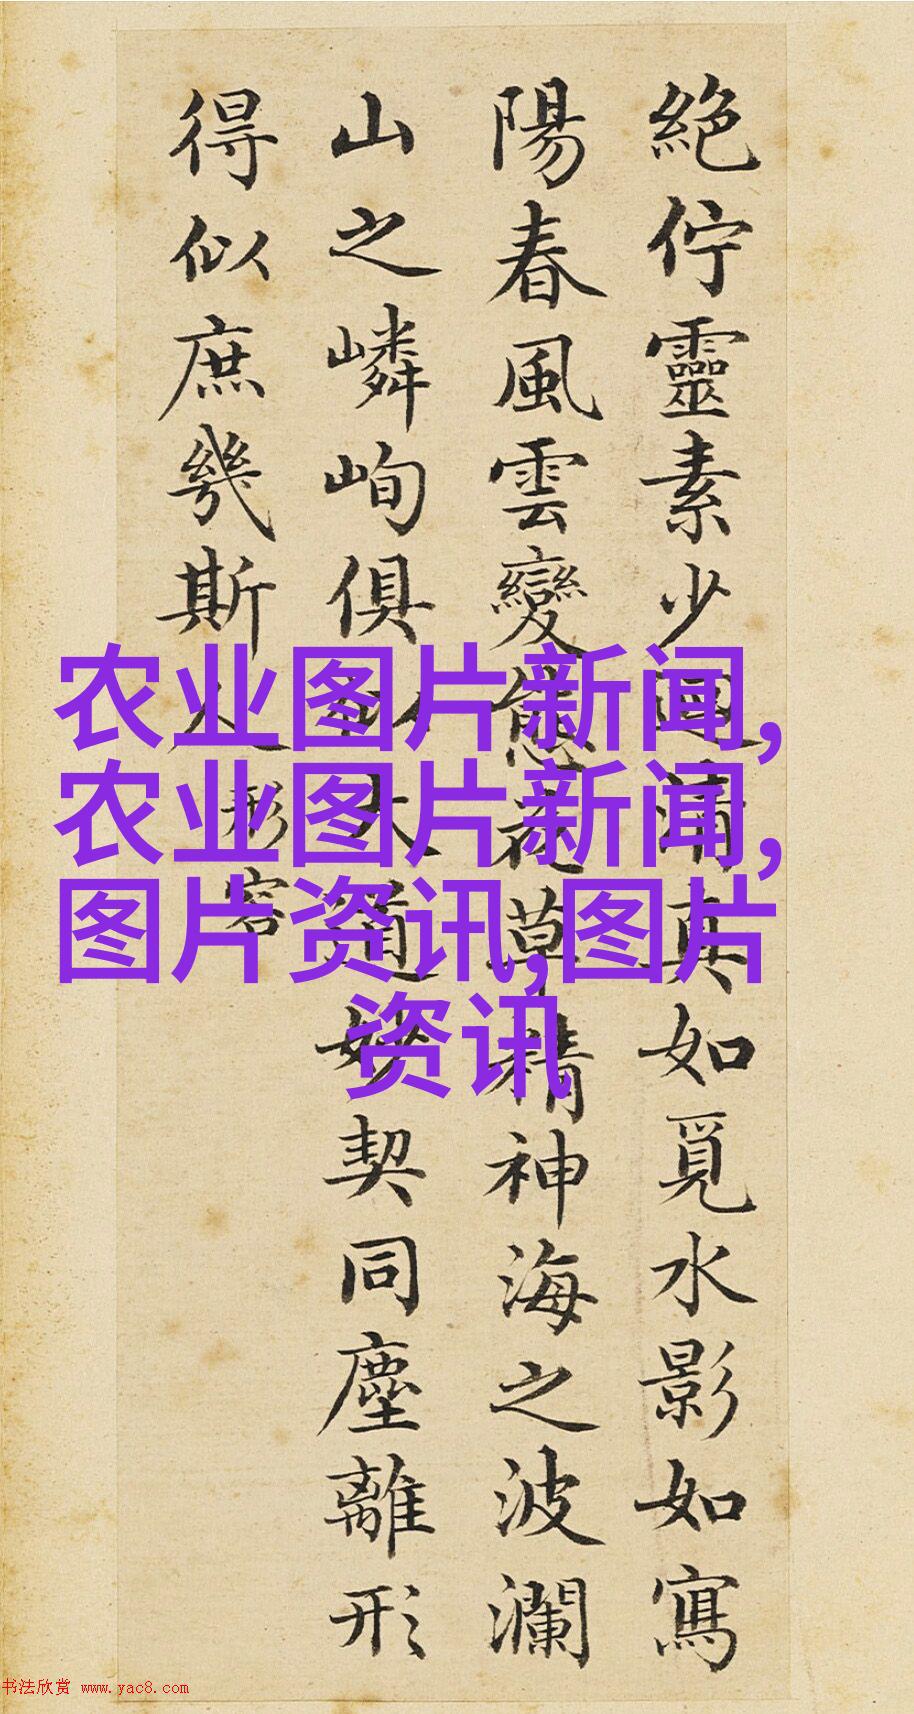 絶佇靈素少迴清真如覓水影如寫
陽春風雲變態花草精神海之波瀾
山之嶙峋俱似大道妙契同塵離形
得似庶幾斯人
形容
农业图片新闻,
农业图片新闻,
图片资讯,图片
资讯
书法欣赏 www.yac8.com